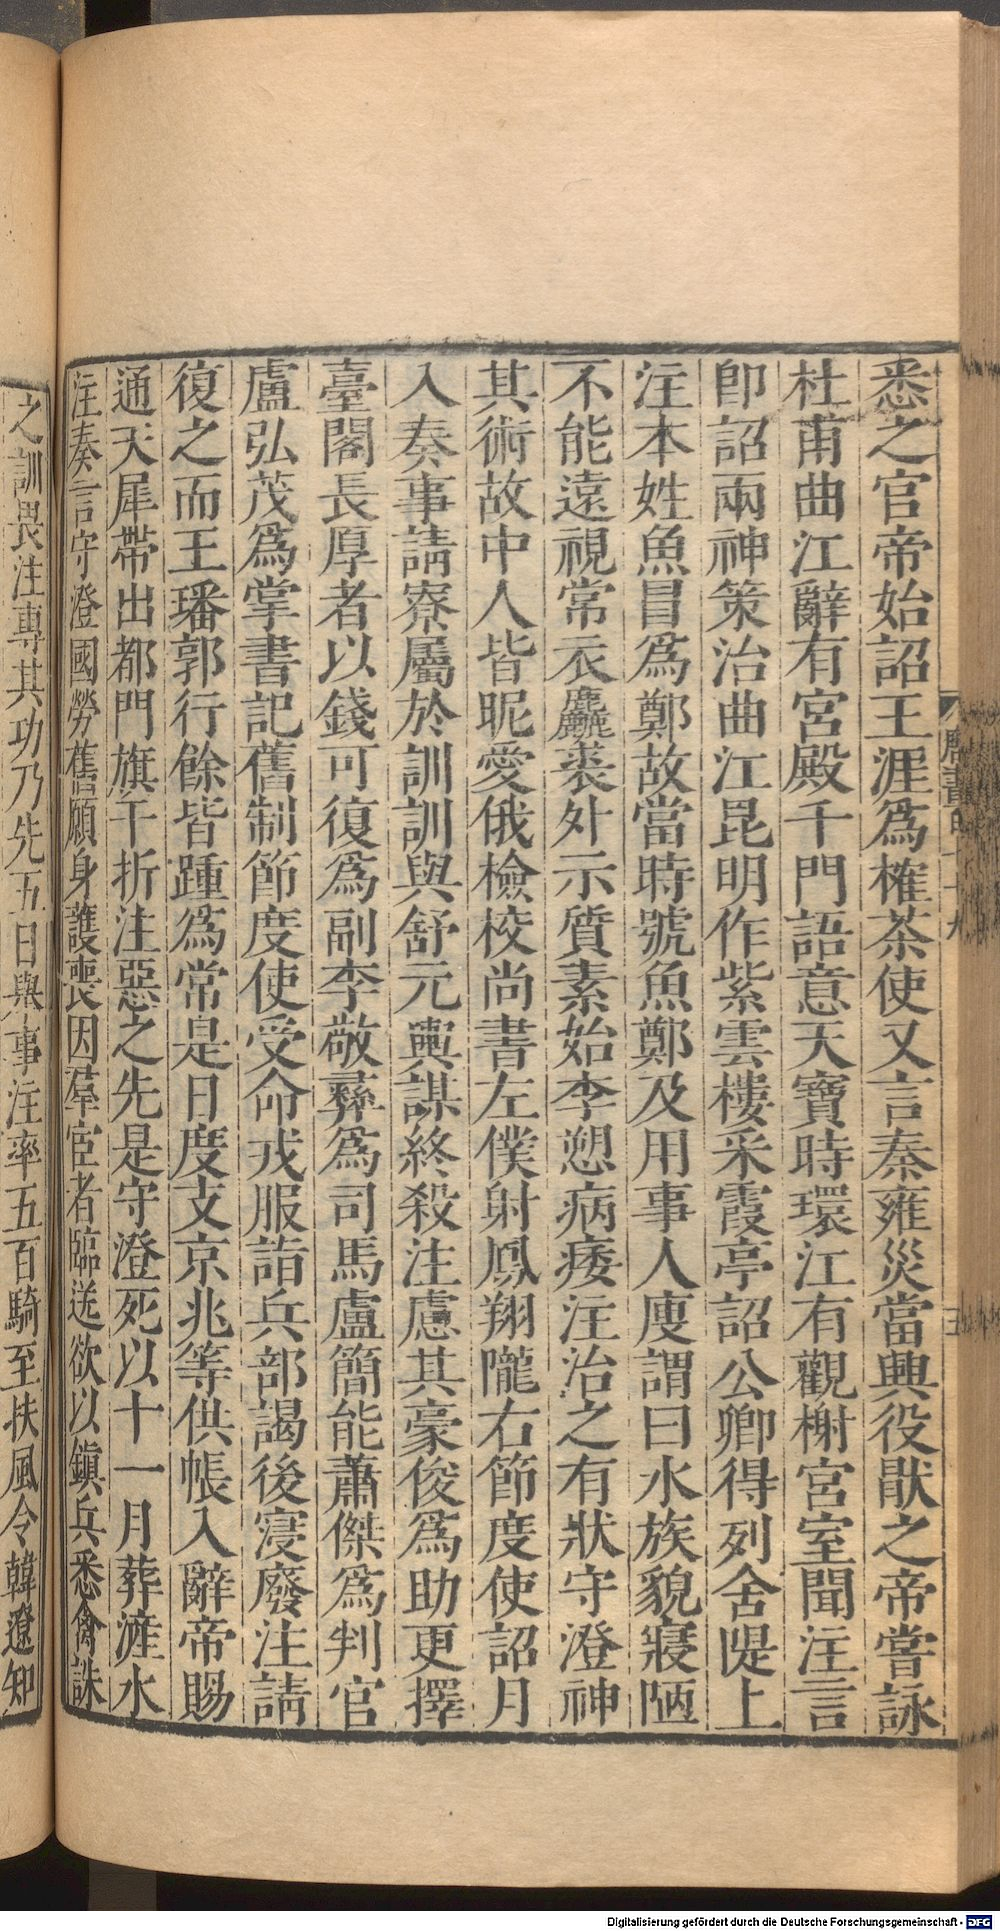 悉之官帝始詔王涯爲榷茶使又言秦雍災當興役猒之帝嘗詠
杜甫曲江辭有宮殿千門語意天寶時環江有觀榭宮室聞注言
卽詔兩神策治曲江昆明作紫雲樓采霞亭詔公卿得列舍隄上
注本姓魚冒爲鄭故當時號魚鄭及用事人廋謂曰水族貌寢陋
不能遠視常衣麤裘外示質素始李愬病痿注治之有狀守澄神
其術故中人皆昵愛俄檢校尚書左僕射鳳翔隴右節度使詔月
入奏事請寮屬於訓訓與舒元輿謀終殺注慮其豪俊爲助更擇
臺閣長厚者以錢可復爲副李敬彝爲司馬盧簡能蕭傑爲判官
盧弘茂爲掌書記舊制節度使受命戎服詣兵部謁後寖廢注請
復之而王璠郭行餘皆踵爲常是日度支京兆等供帳入辭帝賜
通天犀帶出都門旗干折注惡之先是守澄死以十一月葬滻水
注奏言守澄國勞舊願身護喪因羣宦者臨送欲以鎭兵悉禽誅
之訓畏注專其功乃先五日舉事注率五百騎至扶風令韓遼知
Digitalisierung gefördert durch die Deutsche Forschungsgemeinschaft - DFG